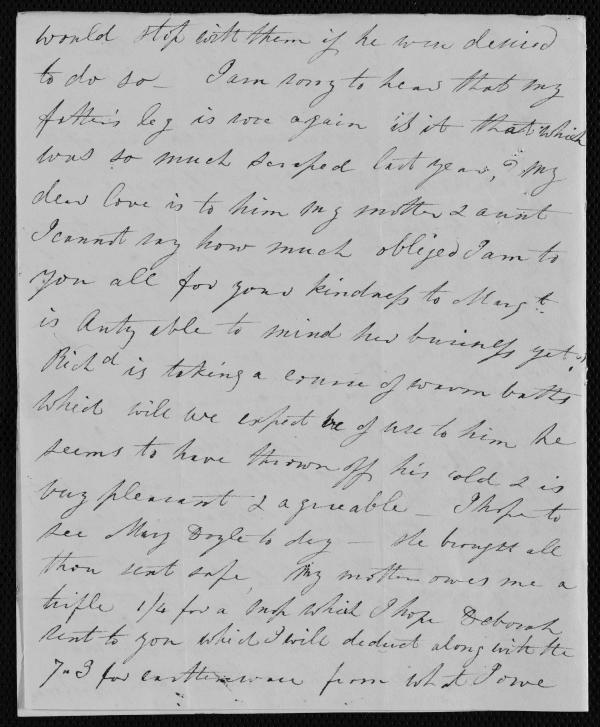 would stop with them if he were desired
to do so - I am sorry to hear that my
father's leg is sore again is it that which
was so much scraped last year,? my
dear love is to him my mother & aunt
I cannot say how much obliged I am to
you all for your kindness to Margt.
is Anty able to mind her business yet?
Richd is taking a course of warm baths
which will we expect be of use to him he
seems to have thrown off his cold & is
very pleasant & agreeable - I hope to
see Mary Doyle to day - He brought all
thou sent safe, my mother owes me a
trifle 1/4 for a mop which I hope Deborah
sent to you which I will deduct along with the
7-3 for earthenware from what I owe